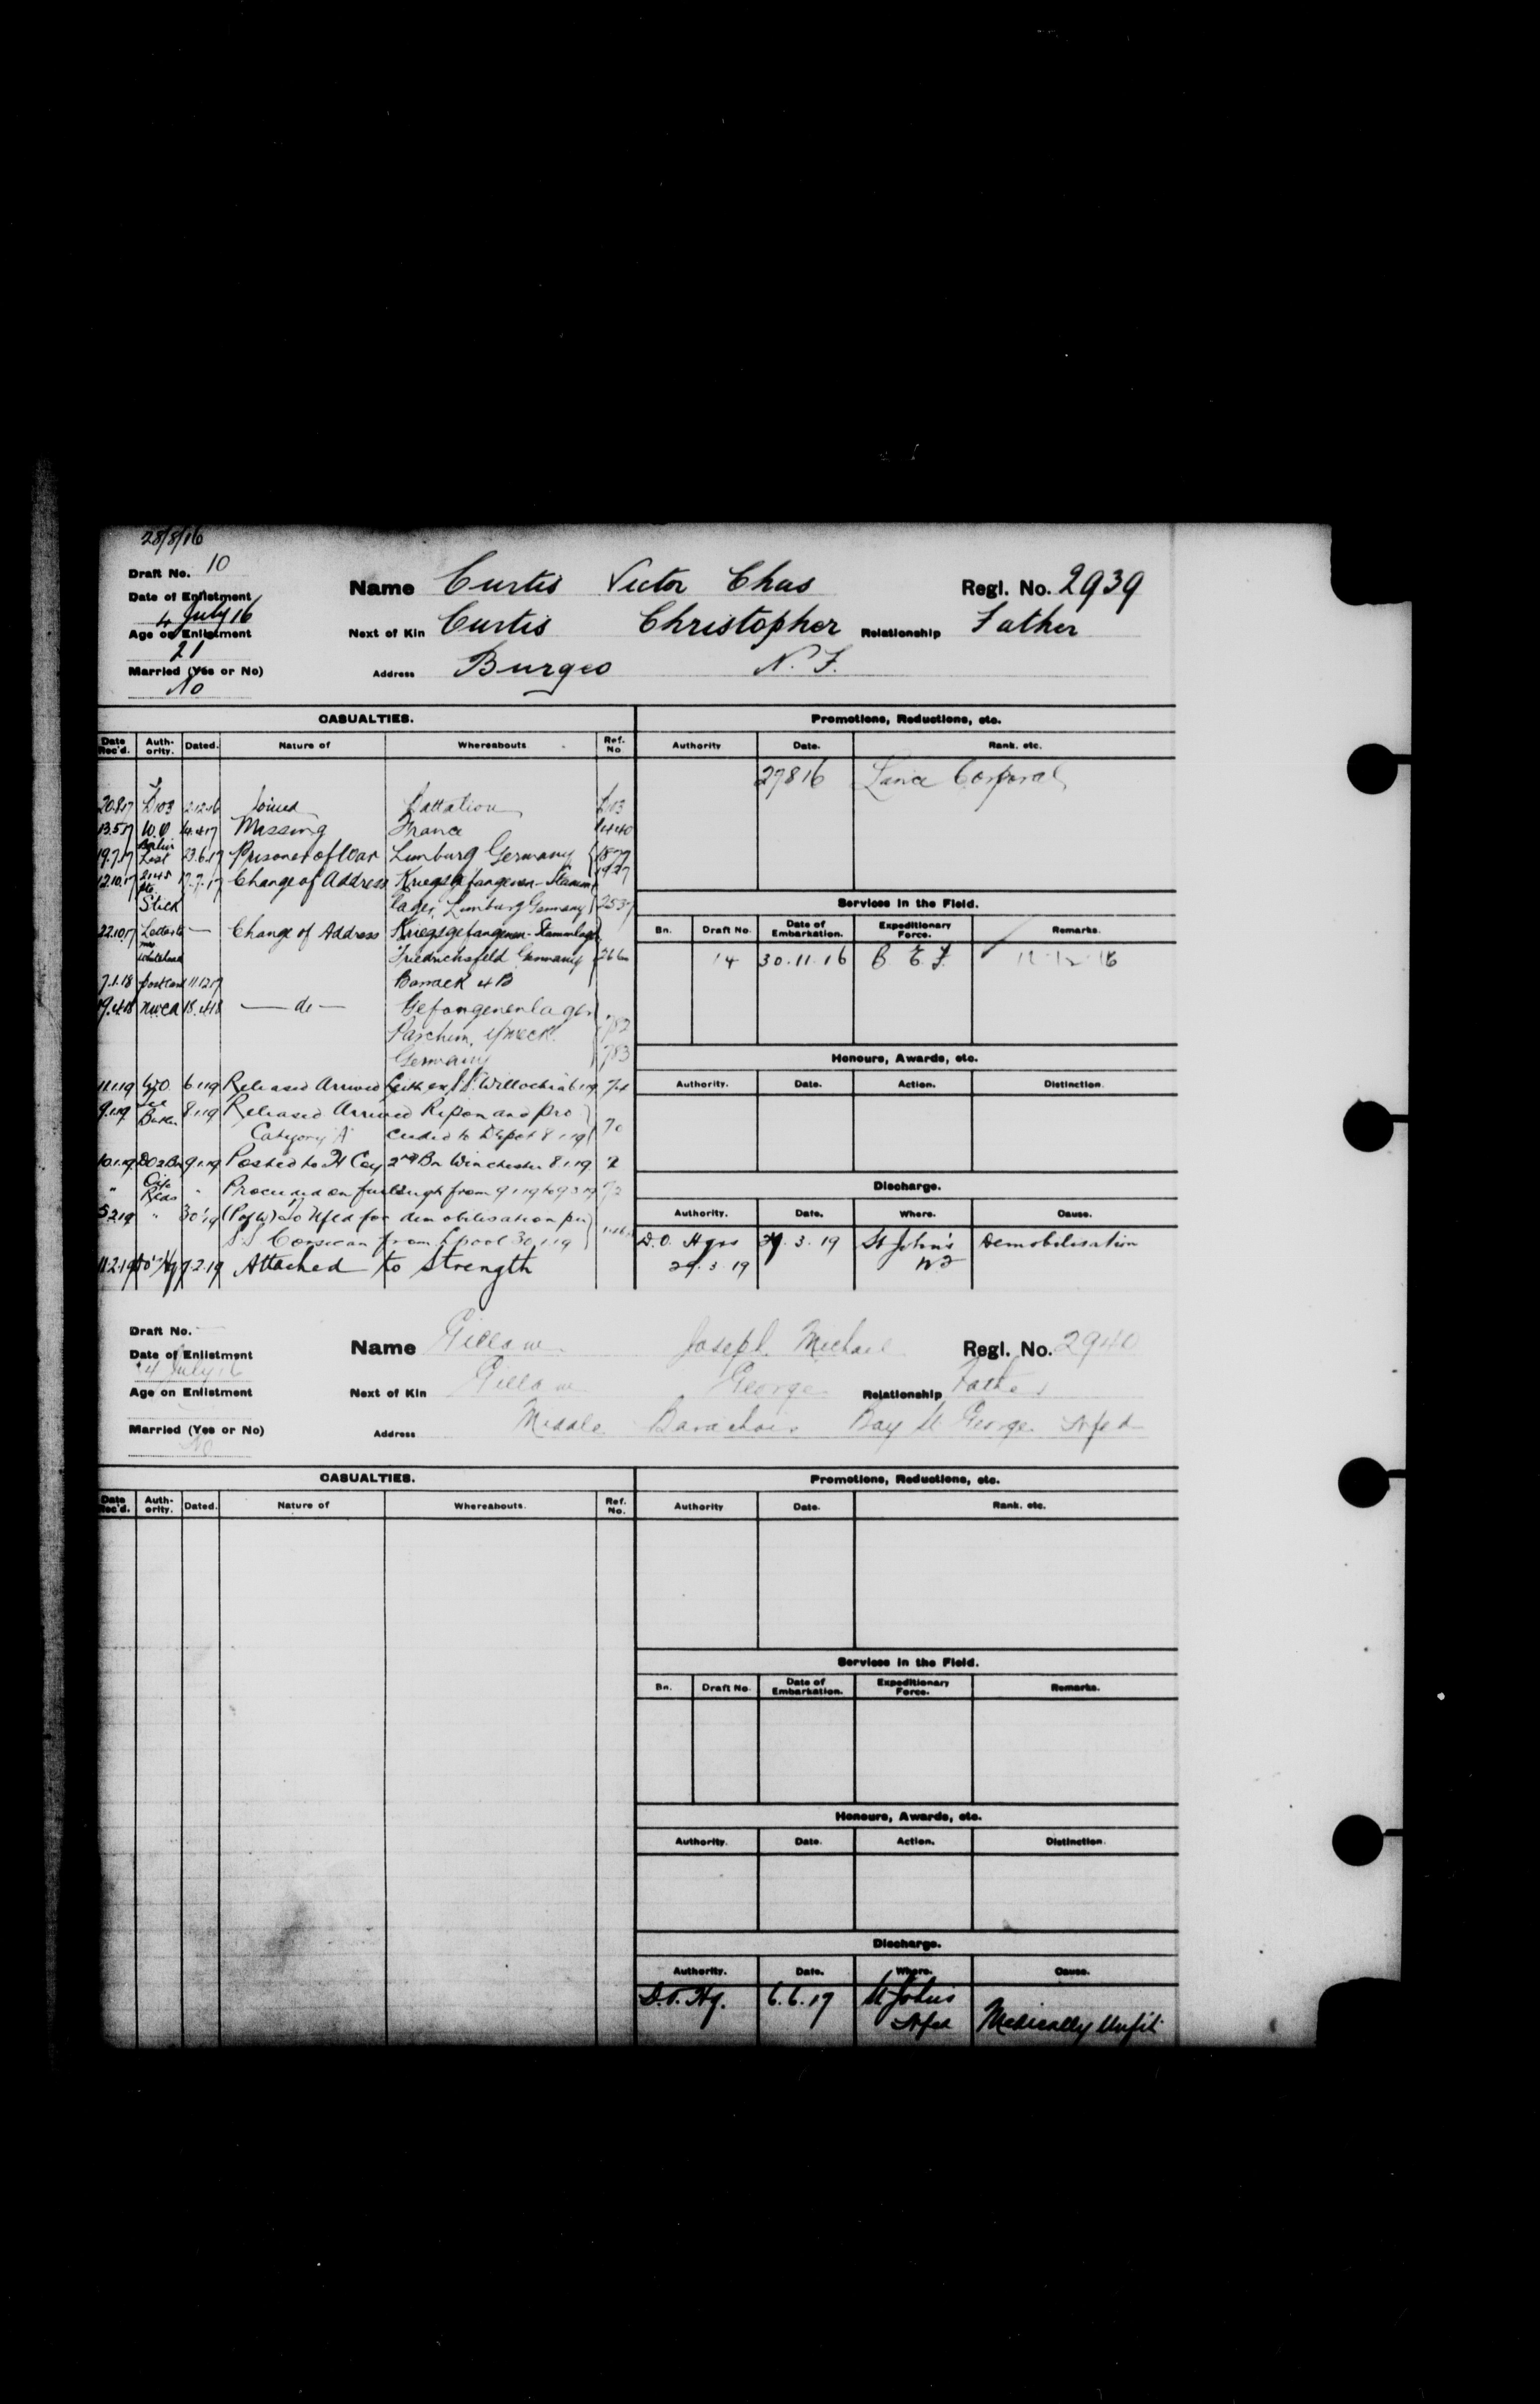 28/8/16
Draft No. 10
Date of Enlistment
4 July 16
Age on Enlistment
21
Married (Yes or No)
No
Name Curtis Victor Chas
Regl. No. 2939
Next of Kin Curtis Christopher Relationship Father
Address Burgeo N.F.
CASUALTIES.
Date Rec'd. Authority. Dated. Nature of Whereabouts Ref. No
Joined Battalion
13.5.17 W.O Missing France 1440
19.7.17 Berlin List 23.6.17 Prisoner of War Limburg Germany
12.10.17 17.7.17 Change of Address Kriegsgefangenen-Stamm
lager, Limburg Germany 2537
22.10.17 — Change of Address Kriegsgefangenen-Stammlager
Friedrichsfeld Germany
7.1.18 postcard 11.12.17 Barrack 4B
18.4.18 — do — Gefangenenlager
Parchim,
Germany
11.1.19 W.O. 6.1.19 Released Arrived Leith ex S.S. Willochra 6.1.19
9.1.19 8.1.19 Released Arrived Ripon and pro
Category "A" ceeded to Depot 8.1.19 70
10.1.19 9.1.19 Posted to H Coy 2nd Bn Winchester 8.1.19
" " Proceeded on furlough from 9.1.19 to
5.2.19 " 30.1.19 (PofW) to Nfld for demobilisation per
S.S Corsican from Lpool 30.1.19
11.2.19 7.2.19 Attached to Strength
Promotions, Reductions, etc.
Authority Date. Rank. etc.
27 8 16 Lance Corporal
Services in the Field.
Bn. Draft No. Date of Embarkation. Expeditionary Force. Remarks.
14 30.11.16 B.E.F. 11.12.16
Honours, Awards, etc.
Authority. Date. Action. Distinction.
Discharge.
Authority. Date. Where. Cause.
D.O. Hqrs 29.3.19 St John's Demobilisation
29.3.19
Draft No.
Date of Enlistment
4 July 16
Age on Enlistment
Married (Yes or No)
No
Name Gillam Joseph Michael
Regl. No. 2940
Next of Kin Gillam George Relationship Father
Address Middle Barachois Bay St George Nfld
CASUALTIES.
Date Rec'd. Authority. Dated. Nature of Whereabouts. Ref. No.
Promotions, Reductions, etc.
Authority Date. Rank. etc.
Services in the Field.
Bn. Draft No Date of Embarkation. Expeditionary Force. Remarks.
Honours, Awards, etc.
Authority. Date. Action. Distinction.
Discharge.
Authority. Date. Where. Cause.
D.O. Hq. 6.6.17 St Johns
Nfld Medically Unfit